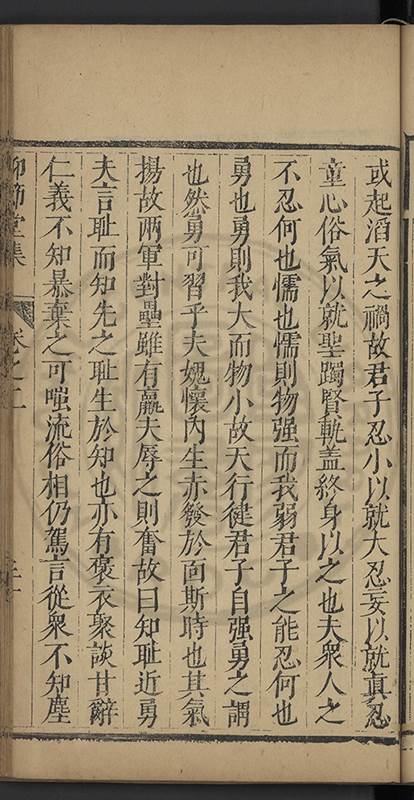 或起滔天之禍故君子忍小以就大忍妄以就真忍
童心俗氣以就聖躅賢軌盖終身以之也夫衆人之
不忍何也懦也懦則物强而我弱君子之能忍何也
勇也勇則我大而物小故天行徤君子自强勇之謂
也然勇可習乎夫媿懷內生赤發於面斯時也其氣
揚故兩軍對壘雖有羸夫辱之則奮故曰知耻近勇
夫言耻而知先之耻生於知也亦有褒衣聚談甘辭
仁義不知暴棄之可嗤流俗相仍駕言從衆不知塵
仰節堂集 卷之二